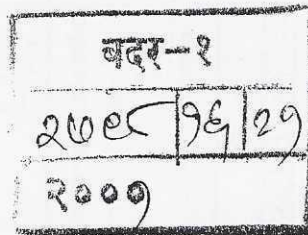 वदर-१
२७९८ १६ २१
२००१